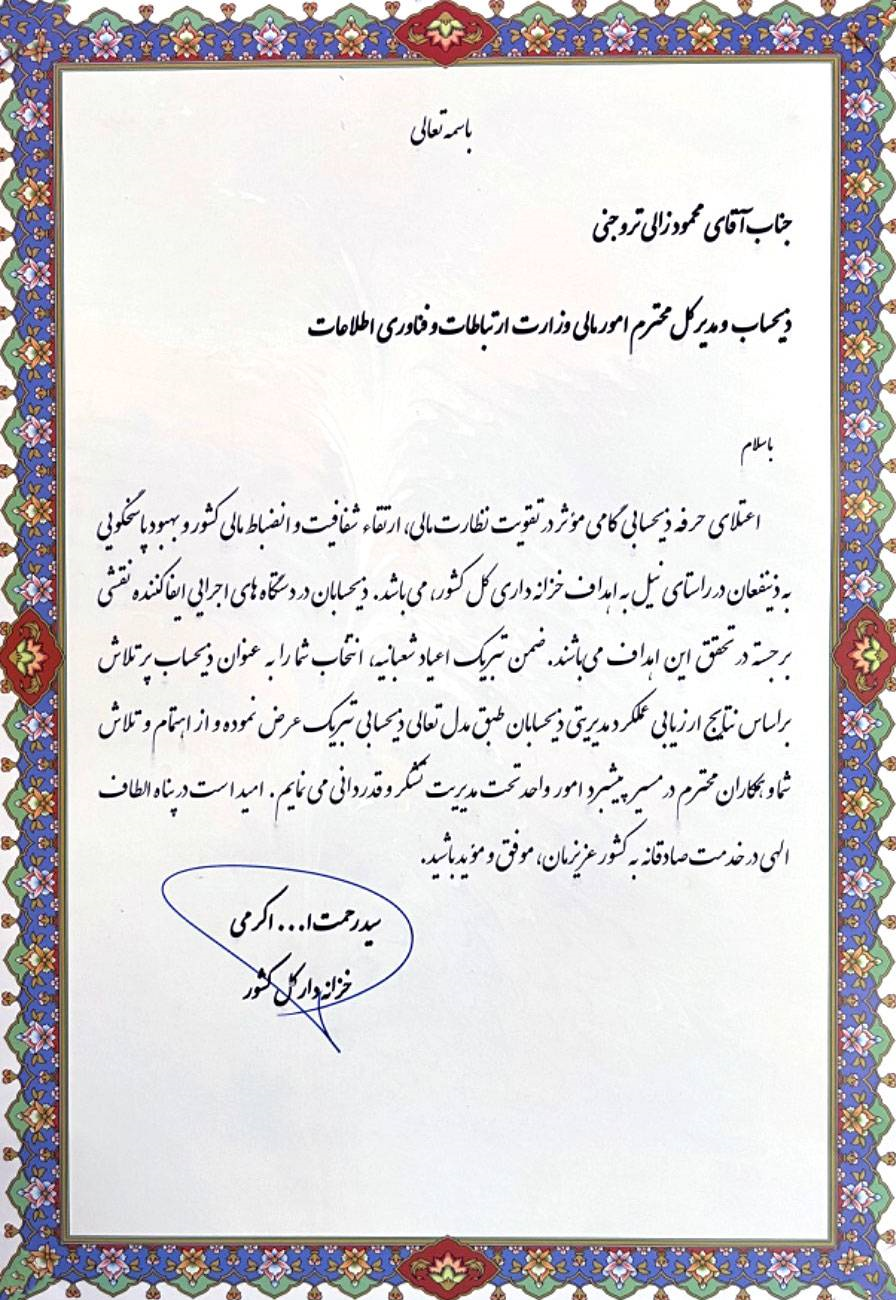 باسمه تعالی
جناب آقای محمود زالی تروجنی
ذیحساب و مدیرکل محترم امور مالی وزارت ارتباطات و فناوری اطلاعات
باسلام
اعتلای حرفه ذیحسابی گامی مؤثر در تقویت نظارت مالی، ارتقاء شفافیت و انضباط مالی کشور و بهبود پاسخگویی
به ذینفعان در راستای نیل به اهداف خزانه داری کل کشور، می باشد. ذیحسابان در دستگاه های اجرایی ایفا کننده نقشی
برجسته در تحقق این اهداف می باشند. ضمن تبریک اعیاد شعبانیه، انتخاب شما را به عنوان ذیحساب پر تلاش
براساس نتایج ارزیابی عملکرد مدیریتی ذیحسابان طبق مدل تعالی ذیحسابی تبریک عرض نموده و از اهتمام و تلاش
شما و همکاران محترم در مسیر پیشبرد امور واحد تحت مدیریت تشکر و قدردانی می نمایم. امید است در پناه الطاف
الهی در خدمت صادقانه به کشور عزیزمان، موفق و مؤید باشید.
سید رحمت ا... اکرمی
خزانه دار کل کشور